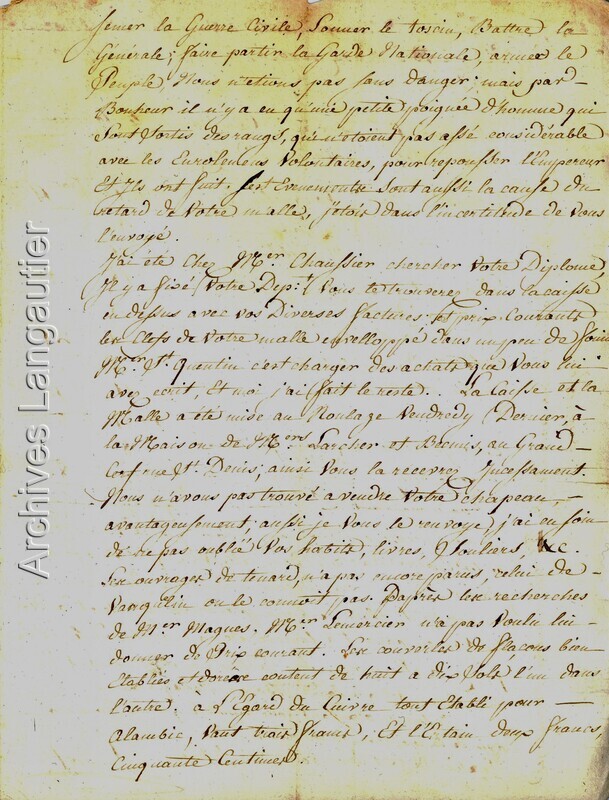 semer la Guerre Civile, Sonner le tocsin, Battre la
Générale; faire partir la Garde Nationale, armer le
Peuple, Nous n'etions pas sans danger; mais par
Bonheur il n'y a eu qu'une petite poignée d'homme qui
Sont Sortis des rangs, qui n'etoient pas assé considérable
avec les Enrolemens Volontaires, pour repousser l'Empereur
Et Ils ont fuit. sont aussi la cause du
retard de Votre malle, j'etois dans l'incertitude de Vous
l'envoyé.
J'ai été Chez Mer Chaussier chercher Votre Diplome
Il y a fixé (Votre Dep: Vous le trouverez dans la caisse
en dessus avec vos Diverses factures et prix Courants
les Clefs de Votre malle envelloppé dans un peu de foin
Mer St. Quentin c'est charger des achats que Vous lui
avez ecrit, Et moi j'ai fait le reste.. La Caisse et la
Malle a été mise au Roulage Vendredy Dernier, à
la Maison de Mers Larcher et au Grand-
Cerf rue St. Denis, ainsi Vous la recevrez Incessament.
Nous n'avons pas trouvé a vendre Votre chapeau,
avantageusement, aussi je Vous le renvoye, j'ai eu soin
de ne pas oublié Vos habits, livres, Souliers, &c.
Les ouvrages de tenard, n'a pas encore parus, celui de
Vauquelin on le connoit pas. Daprès les recherches
de Mer Magnes. Mer Lemercier n'a pas Voulu lui
donner de Prix courant. Les couvercles de flacons bien
Etablies et dorée coutent de huit a dix Sols l'un dans
l'autre. à L'Egard du Cuivre tout Etablé pour
alambic, Vaut trois francs, Et l'Etain deux francs,
Cinquante Centimes.
Archives Langautier